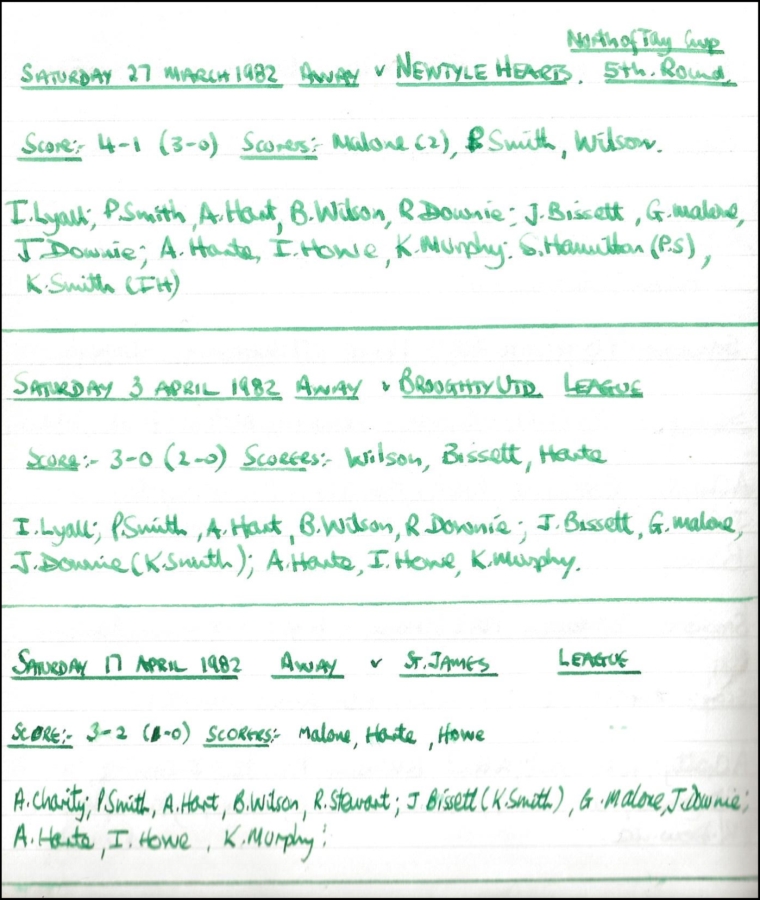 North of Tay Cup
SATURDAY 27 MARCH 1982 AWAY v NEWTYLE HEARTS. 5th. Round.
Score:- 4-1 (3-0) Scorers:- Malone (2), Smith, Wilson.
I. Lyall; P. Smith, A. Hart, B. Wilson, R. Downie; J. Bissett, G. Malone,
J. Downie; A. Harte, I. Howe, K. Murphy. S. Hamilton (P.S),
K. Smith (IH)
SATURDAY 3 APRIL 1982 AWAY v BROUGHTY UTD. LEAGUE
SCORE:- 3-0 (2-0) SCORERS:- Wilson, Bissett, Harte
I. Lyall; P. Smith, A. Hart, B. Wilson, R. Downie; J. Bissett, G. Malone,
J. Downie (K. Smith); A. Harte, I. Howe, K. Murphy.
SATURDAY 17 APRIL 1982 AWAY v ST. JAMES LEAGUE
SCORE:- 3-2 (1-0) SCORERS:- Malone, Harte, Howe
A. Charity; P. Smith, A. Hart, B. Wilson, R. Stewart; J Bissett (K. Smith), G. Malone, J. Downie;
A. Harte, I. Howe, K. Murphy.